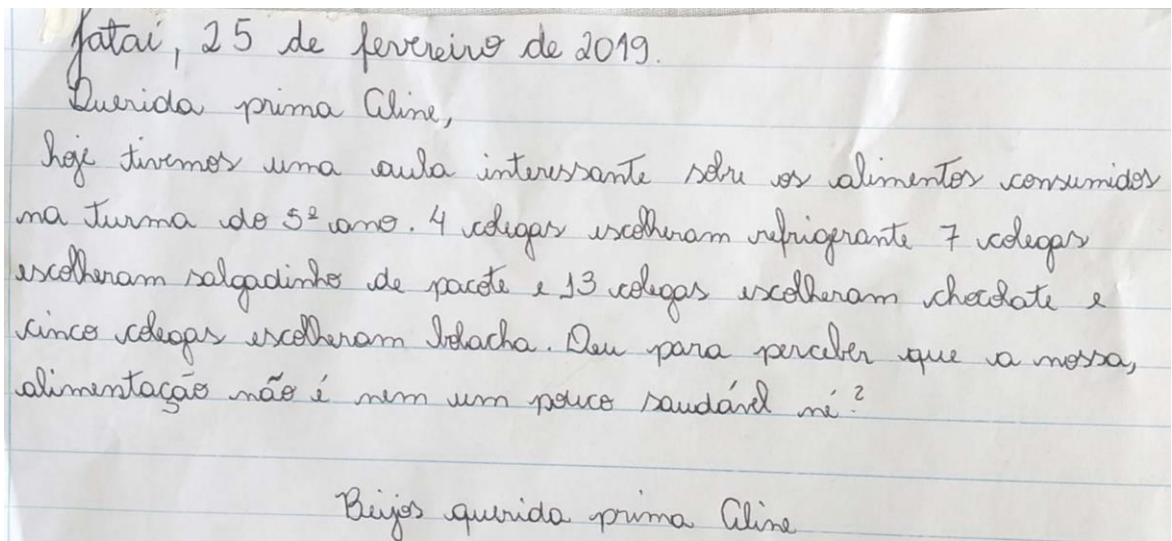 Jataí, 25 de fevereiro de 2019.
Querida prima Aline,
hoje tivemos uma aula interessante sobre os alimentos consumidos
na turma do 5º ano. 4 colegas escolheram refrigerante 7 colegas
escolheram salgadinho de pacote e 13 colegas escolheram chocolate e
cinco colegas escolheram bolacha. Deu para perceber que a nossa,
alimentação não é nem um pouco saudável né?
Beijos querida prima Aline